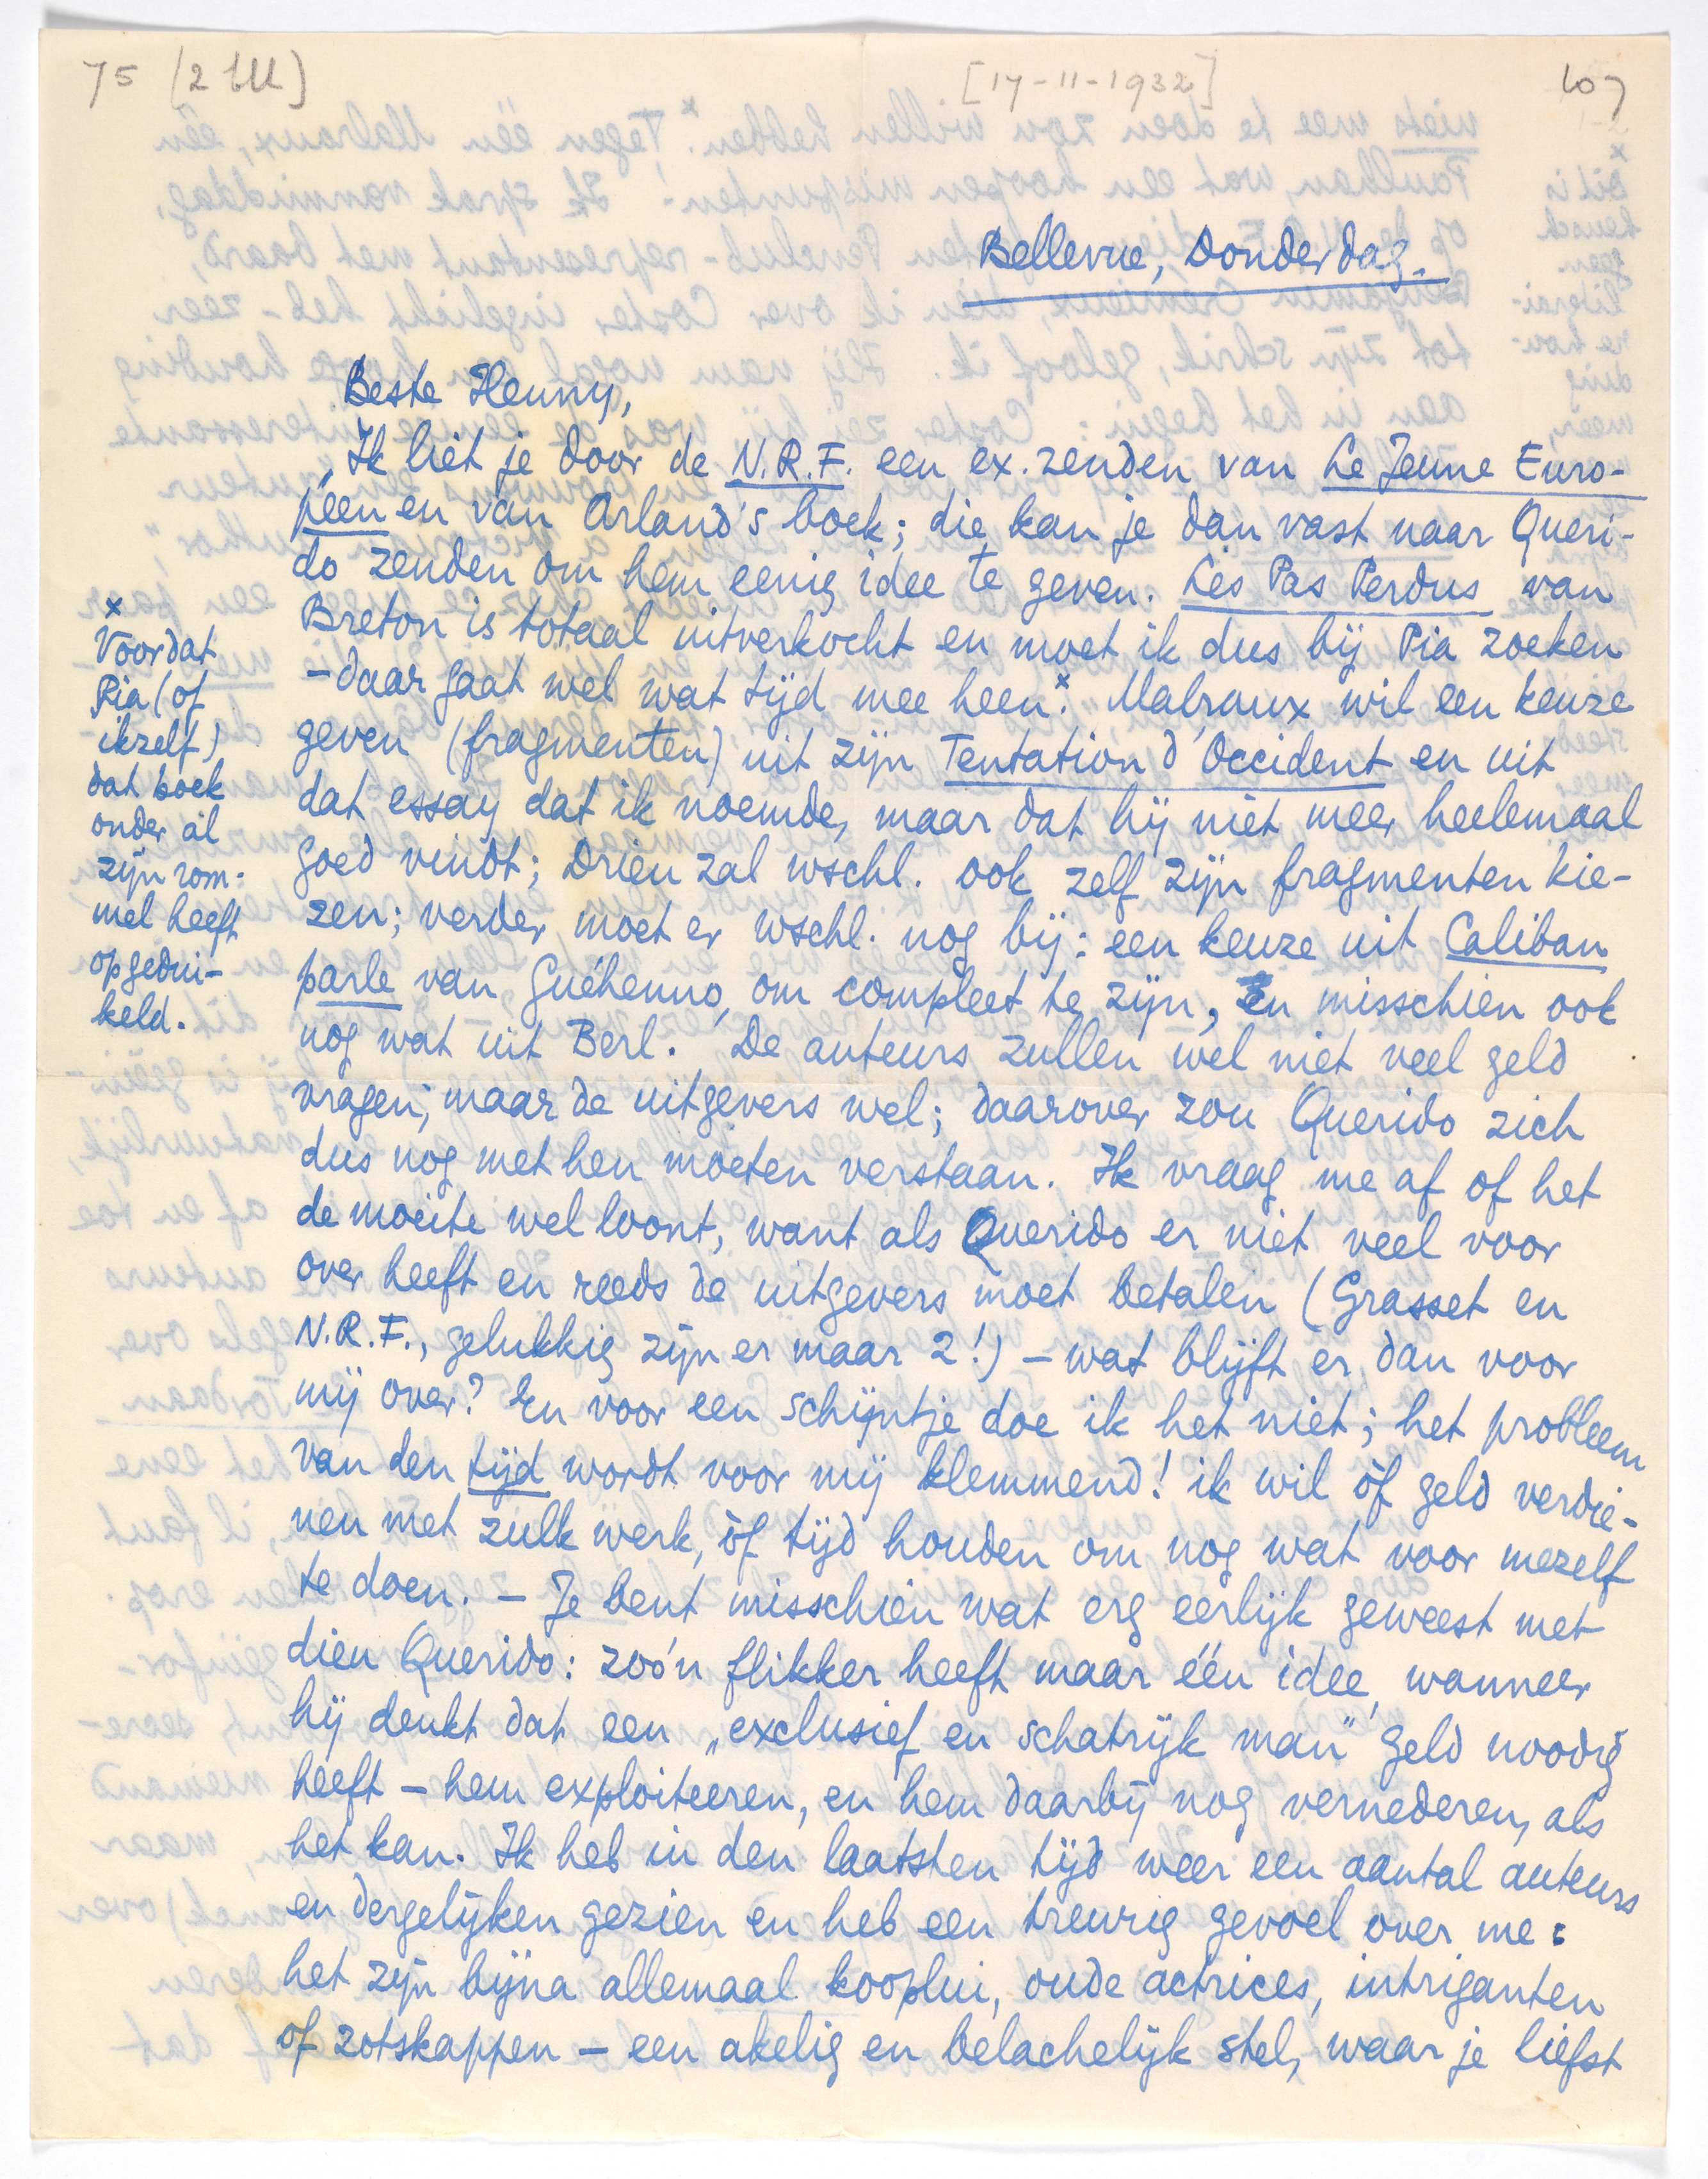 75 (2 bll)
[17-11-1932]
107
Bellevue, Donderdag.
Beste Henny,
Ik liet je door de N.R.F. een ex. zenden van Le Jeune Euro-
péen en van Arland's boek; die kan je dan vast naar Queri-
do zenden om hem eenig idee te geven. Les Pas Perdus van
Breton is totaal uitverkocht en moet ik dus bij Pia zoeken
- daar gaat wel wat tijd mee heen.x Malraux wil een keuze
geven (fragmenten) uit zijn Tentation d'Occident en uit
dat essay dat ik noemde, maar dat hij niet meer heelemaal
goed vindt; Drieu zal wschl. ook zelf zijn fragmenten kie-
zen; verder moet er wschl. nog bij: een keuze uit Caliban
parle van Guéhenno, om compleet te zijn, en misschien ook
nog wat uit Berl. De auteurs zullen wel niet veel geld
vragen, maar de uitgevers wel; daarover zou Querido zich
dus nog met hen moeten verstaan. Ik vraag me af of het
de moeite wel loont, want als Querido er niet veel voor
over heeft en reeds de uitgevers moet betalen (Grasset en
N.R.F., gelukkig zijn er maar 2!) - wat blijft er dan voor
mij over? En voor een schijntje doe ik het niet; het probleem
van den tijd wordt voor mij klemmend! ik wil òf geld verdie-
nen met zulk werk, òf tijd houden om nog wat voor mezelf
te doen. - Je bent misschien wat erg eerlijk geweest met
dien Querido: zoo'n flikker heeft maar één idee, wanneer
hij denkt dat een „exclusief en schatrijk man" geld noodig
heeft - hem exploiteeren, en hem daarbij nog vernederen, als
het kan. Ik heb in den laatsten tijd weer een aantal auteurs
en dergelijken gezien en heb een treurig gevoel over me:
het zijn bijna allemaal kooplui, oude actrices, intriganten
of zotskappen - een akelig en belachelijk stel, waar je liefst
x
Voordat
Pia (of
ikzelf)
dat boek
onder al
zijn rom-
mel heeft
opgedui-
keld.